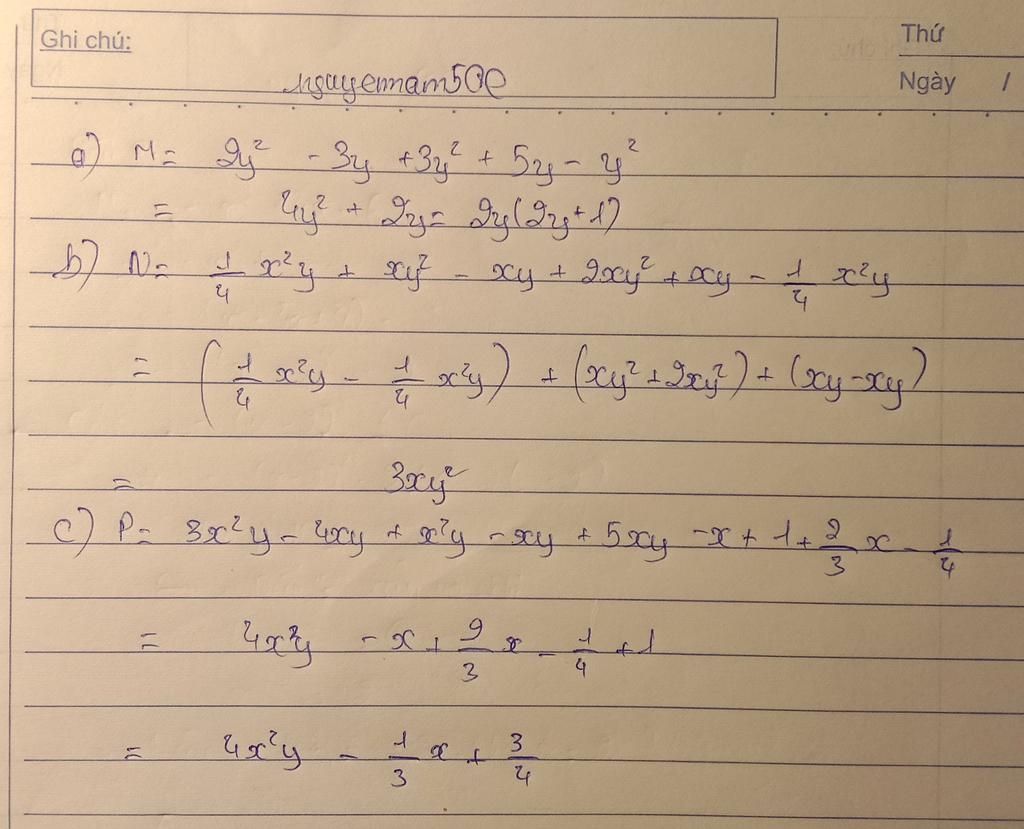 Ghi chú:
Thứ
nguyennam50e
Ngày /
a) M = 2y² - 3y + 3y² + 5y - y²
= 4y² + 2y = 2y(2y+1)
b) N = 1/4 x²y + xy² - xy + 2xy² + xy - 1/4 x²y
= (1/4 x²y - 1/4 x²y) + (xy² + 2xy²) + (xy - xy)
= 3xy²
c) P = 3x²y - 4xy + x²y - xy + 5xy - x + 1 + 2/3 x - 1/4
= 4x²y - x + 2/3 x - 1/4 + 1
= 4x²y - 1/3 x + 3/4